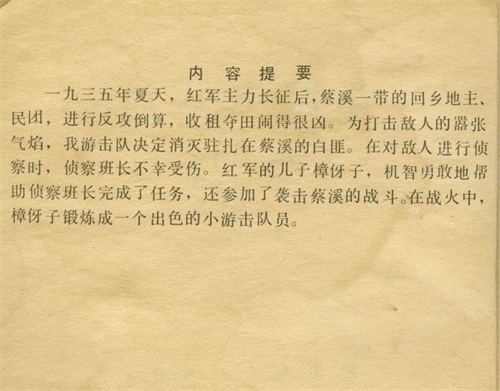 内容提要
一九三五年夏天，红军主力长征后，蔡溪一带的回乡地主、
民团，进行反攻倒算，收租夺田闹得很凶。为打击敌人的嚣张
气焰，我游击队决定消灭驻扎在蔡溪的白匪。在对敌人进行侦
察时，侦察班长不幸受伤。红军的儿子樟伢子，机智勇敢地帮
助侦察班长完成了任务，还参加了袭击蔡溪的战斗。在战火中，
樟伢子锻炼成一个出色的小游击队员。